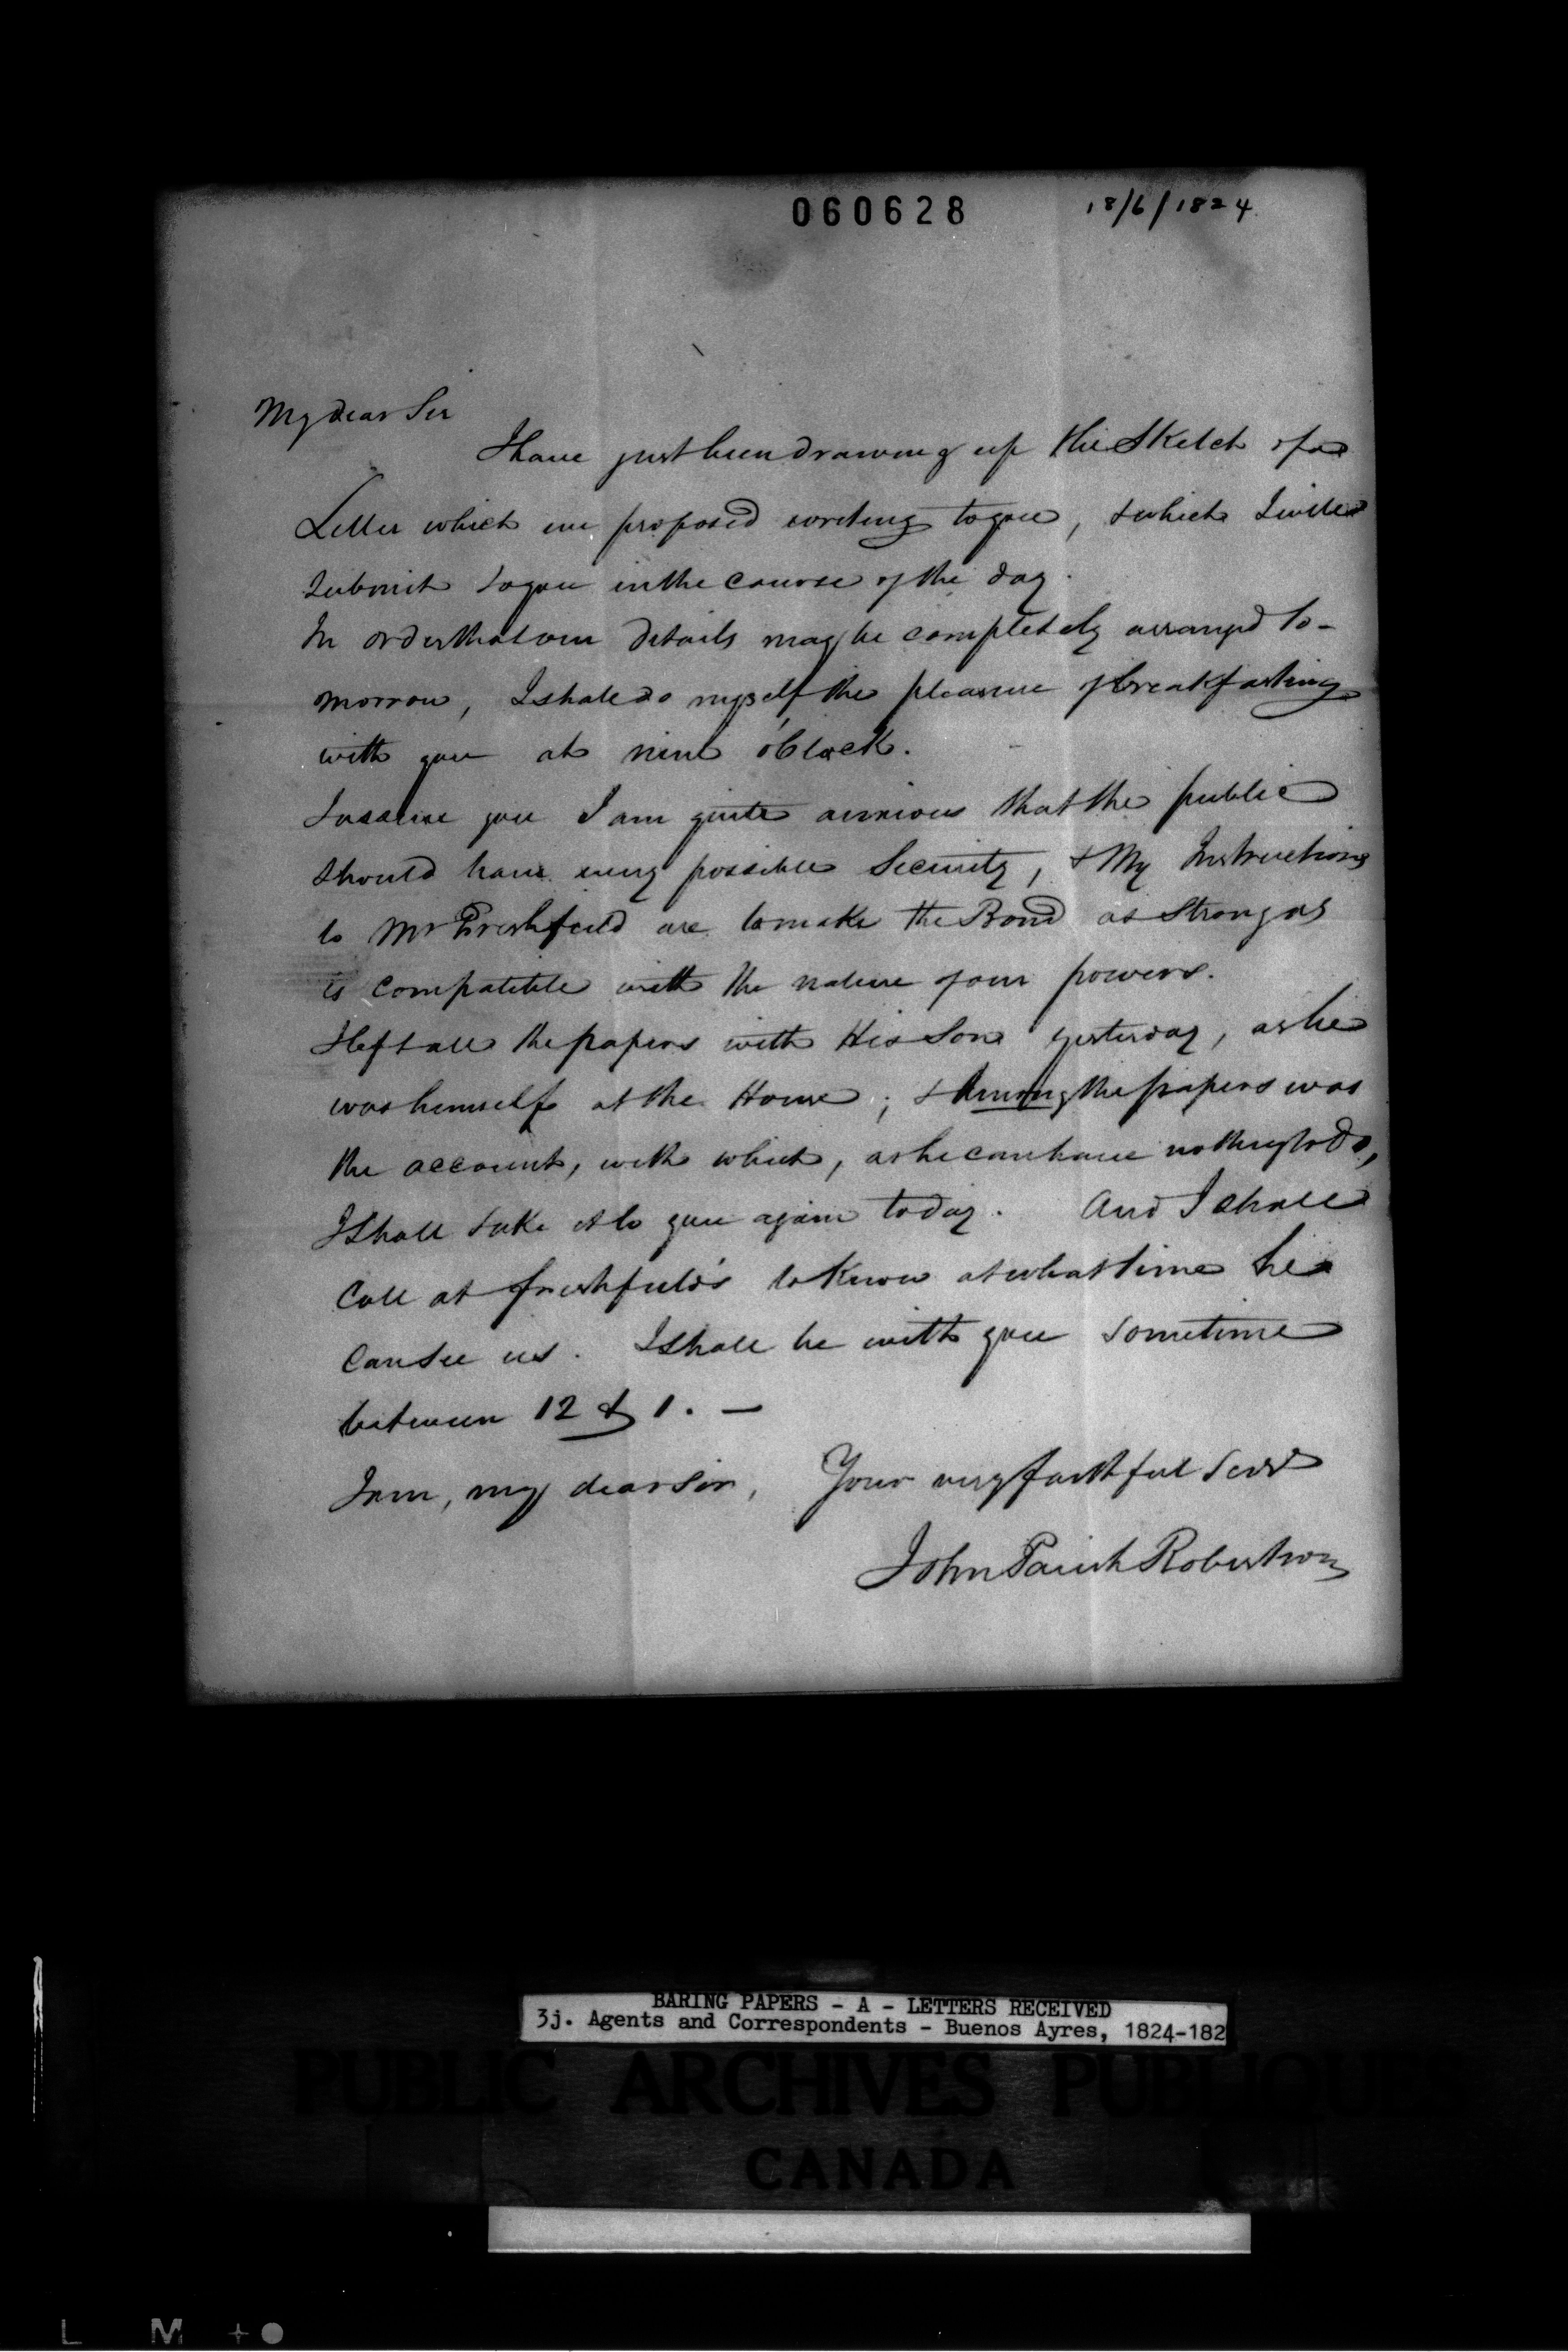 060628
18/6/1824
My dear Sir
I have just been drawing up the Sketch of a
Letter which we proposed writing to you, & which I will
submit to you in the course of the day.
In order that our details may be completely arranged to-
morrow, I shall do myself the pleasure of breakfasting
with you at nine o'Clock.
I assure you I am quite anxious that the public
should have every possible Security, & My Instructions
to Mr Freshfield are to make the Bond as Strong as
is compatible with the nature of our powers.
I left all the papers with His Son yesterday, as he
was himself at the House; & Among the papers was
the account, with which, as he can have nothing to do,
I Shall take it to you again today. And I shall
Call at freshfield's to Know at what time he
can see us. I Shall be with you sometime
between 12 & 1. —
I am, my dear sir, Your very faithful Serv
John Parish Robertson
BARING PAPERS - A - LETTERS RECEIVED
3j. Agents and Correspondents - Buenos Ayres, 1824-182
PUBLIC ARCHIVES PUBLIQUES
CANADA
L M +